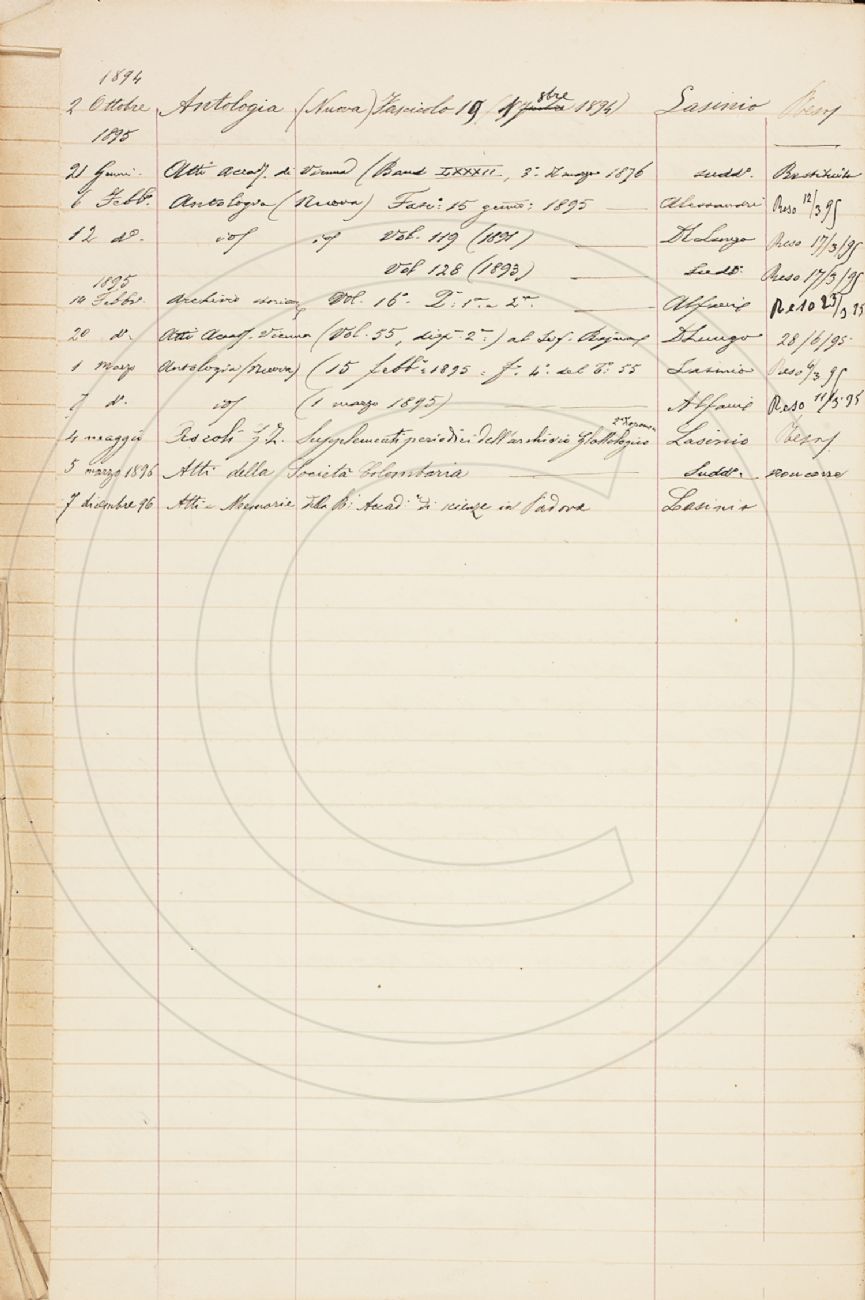 1894
2 Ottobre Antologia (Nuova) Fascicolo 19 (1 8bre 1894) Lasinio Reso
1895
21 Genn. Atti Accad. di Vienna (Band LXXXII, 3º marzo 1876 sudd. Restituito
6 Febb. Antologia (Nuova) Fasc. 15 genn. 1895 Alessandri Reso 12/3 95
12 dº. id id Vol. 119 (1891) D'Lungo Reso 17/3/95
Vol 128 (1893) Sudd. Reso 17/3/95
1895
14 Febb. Archivio Vol. 16º 1ª e 2ª Alfani Reso 23/3 95
20 d. Atti Accad. Vienna (Vol. 55, disp. 2ª) al D'Lungo 28/6/95
1 marzo Antologia (Nuova) (15 febb. 1895 = f. 4º del Vº 55 Lasinio Reso 9/3 95
7 d. id (1 marzo 1895) Alfani Reso 11/5 95
4 maggio Ascoli G. I. Supplementi periodici dell'archivio Glottologico Lasinio Reso
5 marzo 1896 Atti della Società Colombaria Sudd. non corre
7 dicembre 96 Atti e Memorie della R. Accad. di scienze in Padova Lasinio